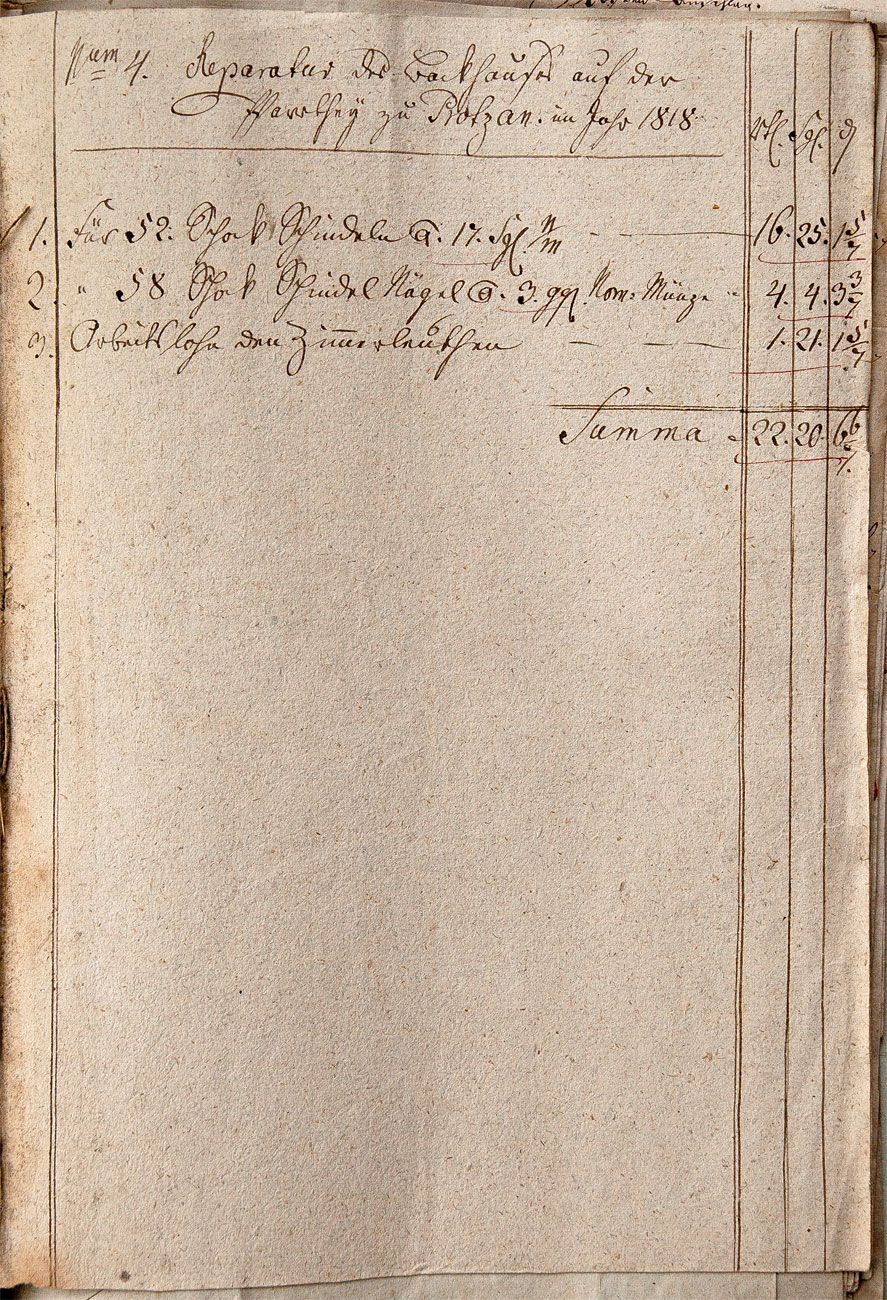 Num 4. Reparatur des Backhauses auf der
Pfarrthey zu Protzan. im Jahr 1818
rtl. Sgl. d
1. Für 52. Schok Schindeln a. 17. Sgl. n/m — 16. 25. 1 5/7
2. " 58 Schok Schindel Nägel a. 3. ggl. Nom: Münze 4. 4. 3 3/7
3. Arbeitslohn den Zimmerleuthen — — — 1. 21. 1 5/7
Summa 22. 20. 6 6/7.